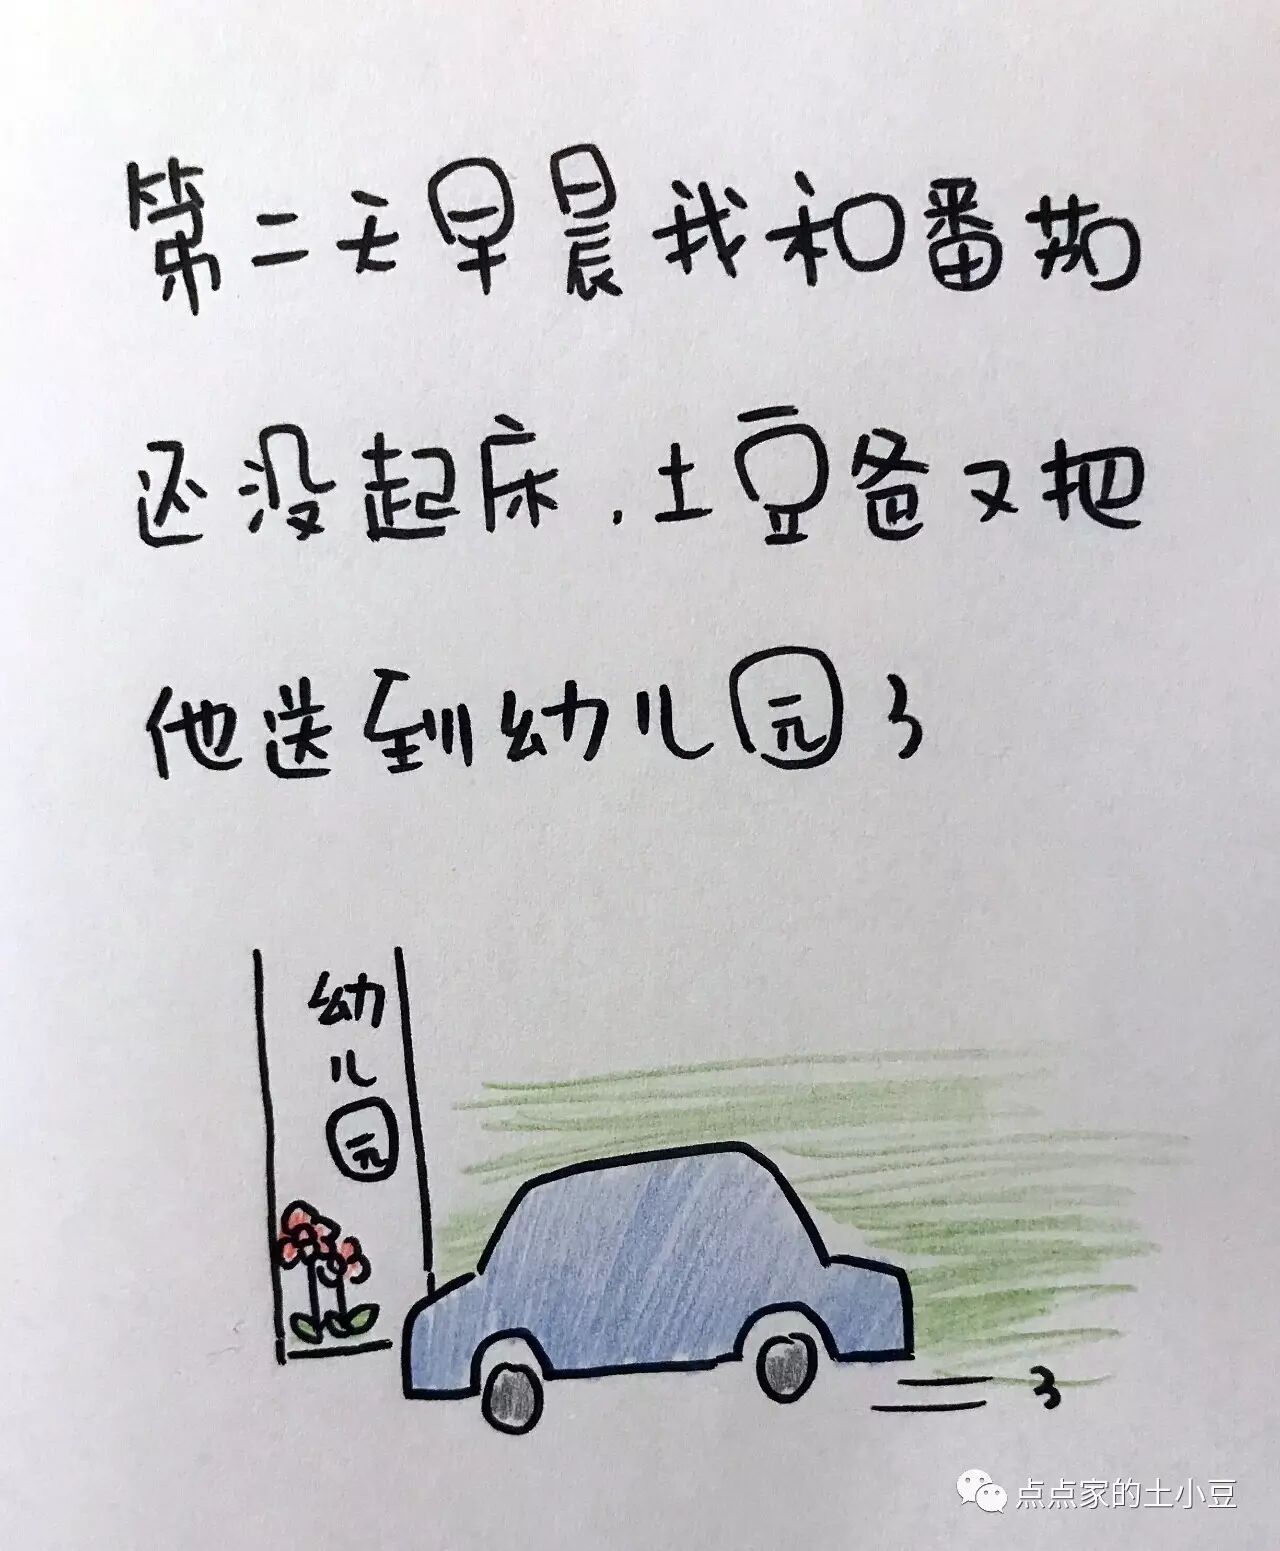 第二天早晨我和番茄
还没起床.土豆爸又把
他送到幼儿园了
幼
儿
园
点点家的土小豆